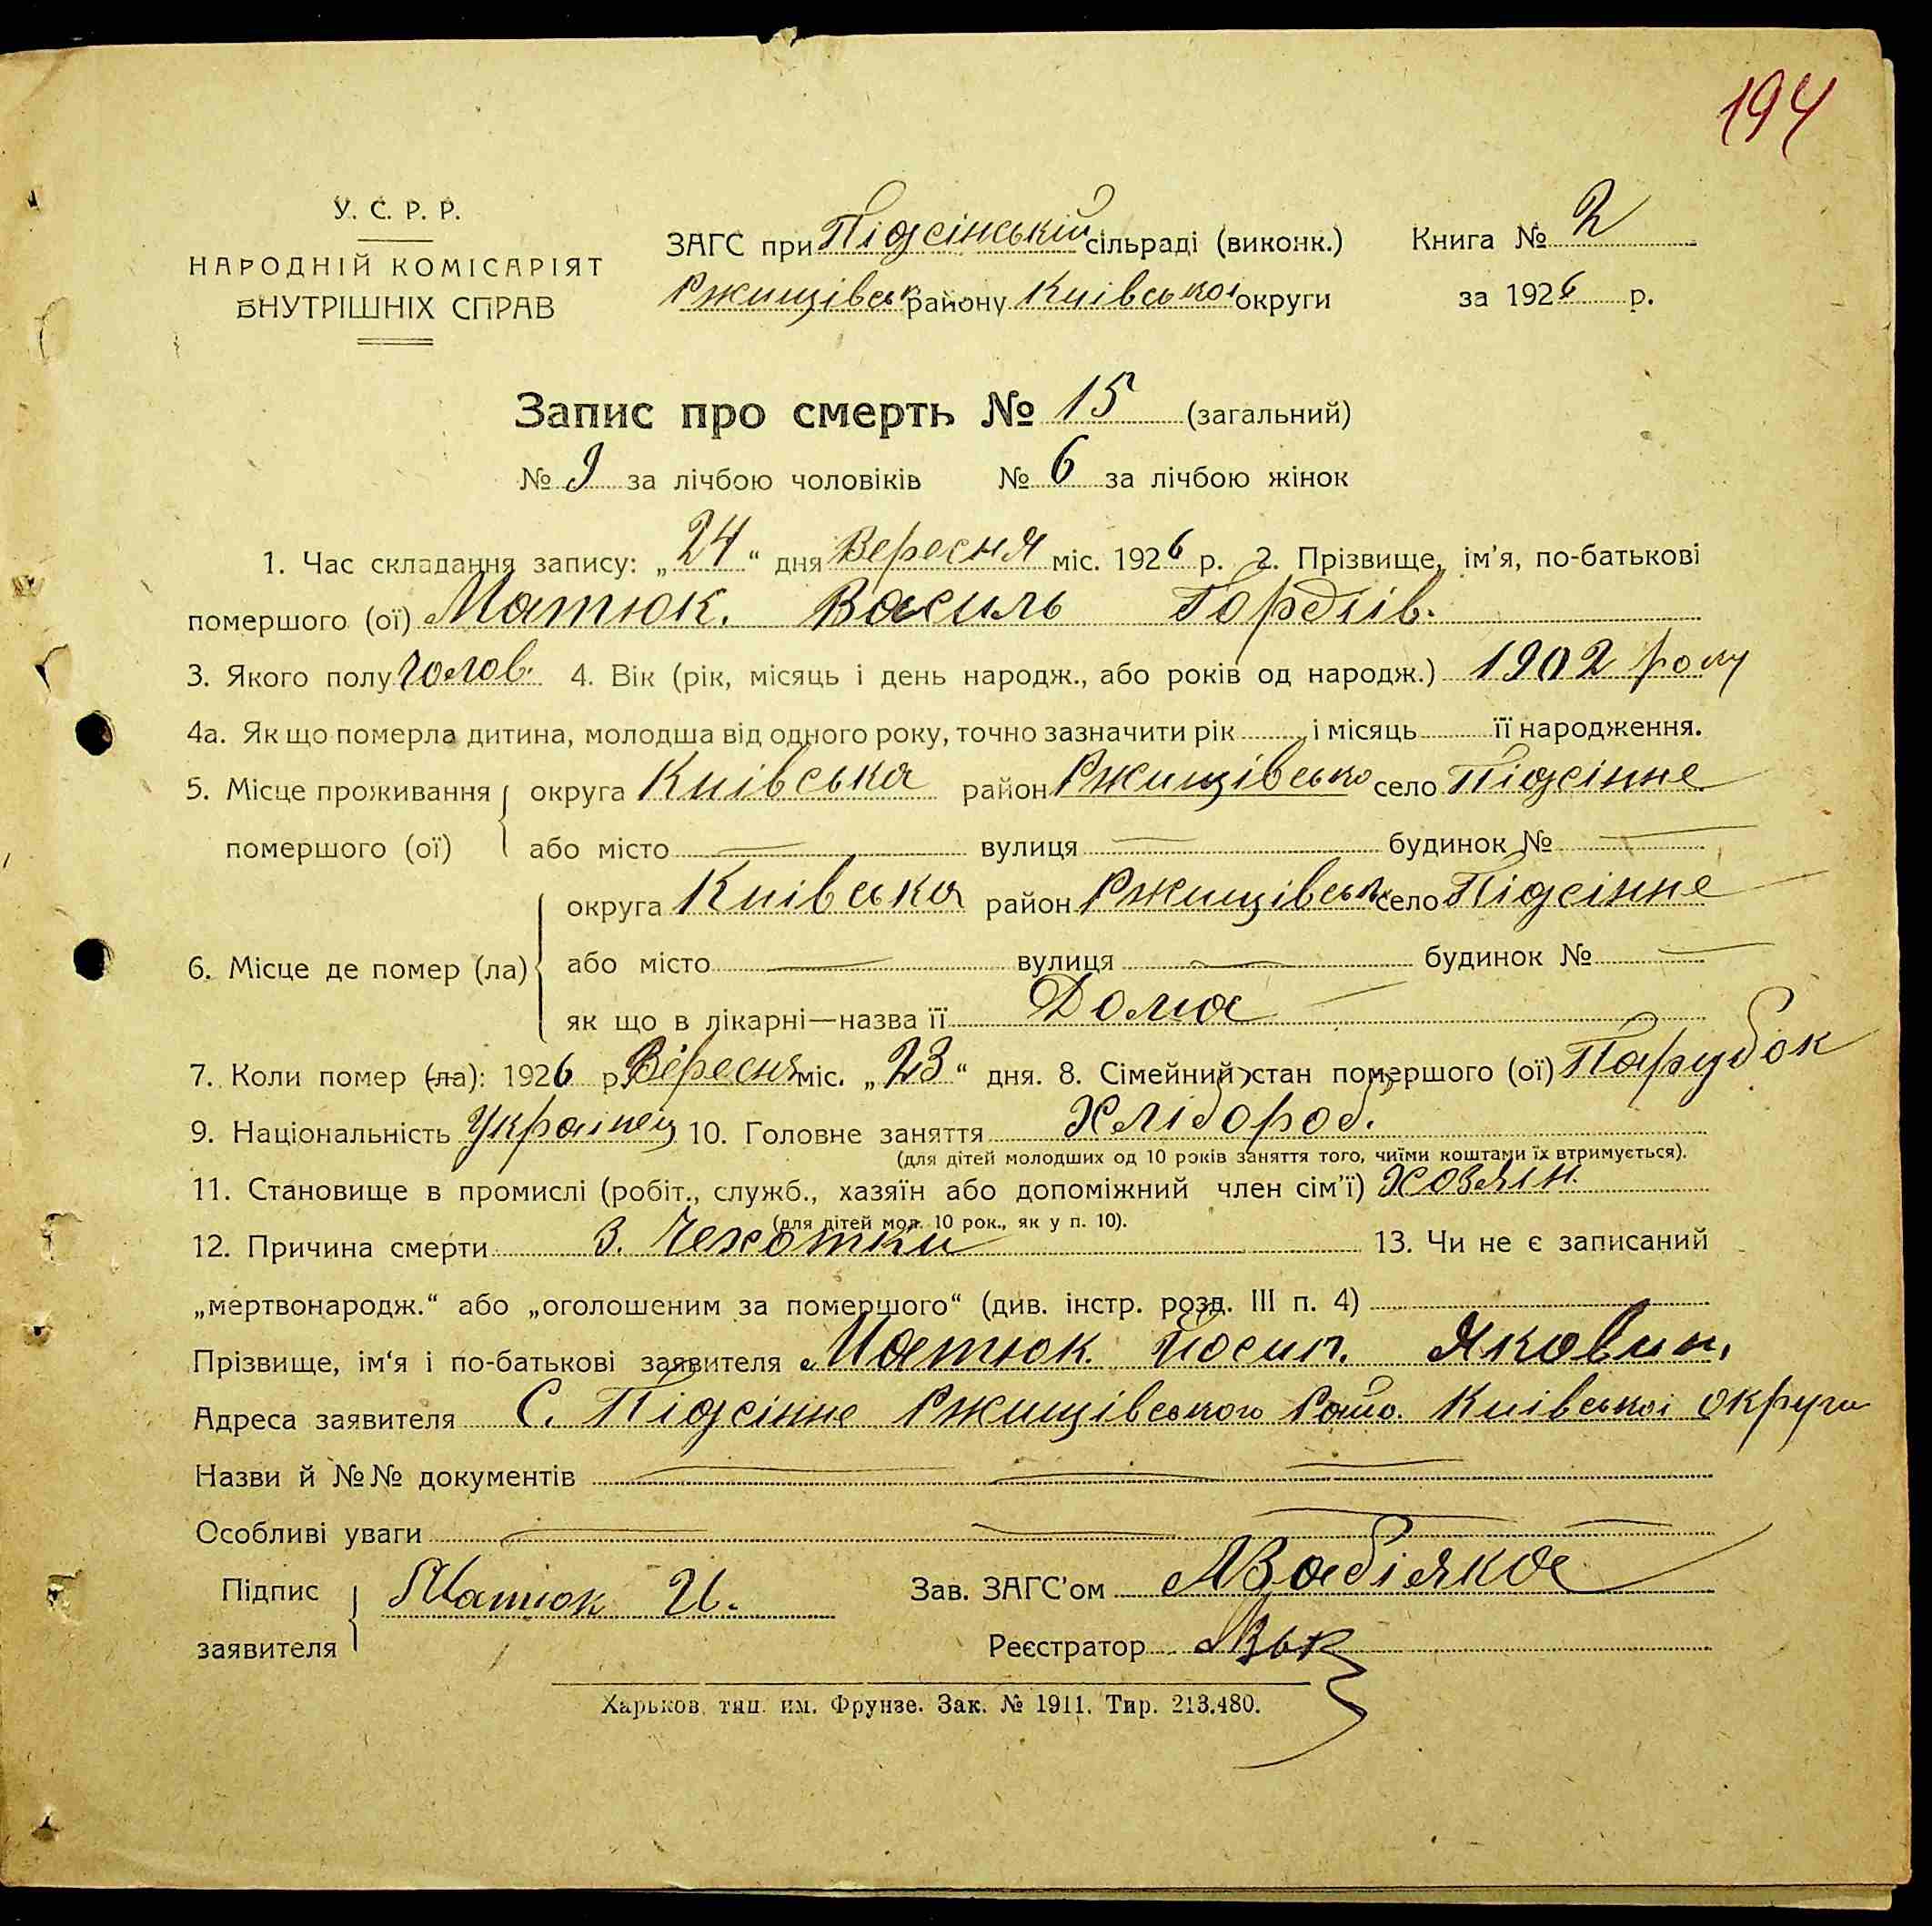 194
У. С. Р. Р.
НАРОДНІЙ КОМІСАРІЯТ
ВНУТРІШНІХ СПРАВ
ЗАГС при Підсінській сільраді (виконк.) Книга № 2
Ржищівськ району Київської округи за 1926 р.
Запис про смерть № 15 (загальний)
№ 9 за лічбою чоловіків № 6 за лічбою жінок
1. Час складання запису: „24“ дня Вересня міс. 1926 р. 2. Прізвище, ім'я, по-батькові
помершого (ої) Матюк. Василь Гордіїв.
3. Якого полу чолов. 4. Вік (рік, місяць і день народж., або років од народж.) 1902 року
4а. Як що померла дитина, молодша від одного року, точно зазначити рік і місяць її народження.
5. Місце проживання помершого (ої) округа Київська район Ржищівсько село Підсінне
або місто — вулиця — будинок № —
6. Місце де помер (ла) округа Київська район Ржищівськ село Підсінне
або місто — вулиця — будинок № —
як що в лікарні—назва її Дома
7. Коли помер (ла): 1926 р. Вересня міс. „23“ дня. 8. Сімейний стан помершого (ої) Парубок
9. Національність Українец 10. Головне заняття Хлібороб.
(для дітей молодших од 10 років заняття того, чиїми коштами їх втримується).
11. Становище в промислі (робіт., служб., хазяїн або допоміжний член сім'ї) Хозяін.
(для дітей мол. 10 рок., як у п. 10).
12. Причина смерти З. Чехотки 13. Чи не є записаний
„мертвонародж.“ або „оголошеним за помершого“ (див. інстр. розд. III п. 4)
Прізвище, ім'я і по-батькові заявителя Матюк. Йосип. Яковин.
Адреса заявителя С. Підсінне Ржищівського Району Київської округи
Назви й №№ документів — — —
Особливі уваги — — — —
Підпис заявителя Матюк И. Зав. ЗАГС'ом
Реєстратор
Харьков, тип. им. Фрунзе. Зак. № 1911. Тир. 213.480.